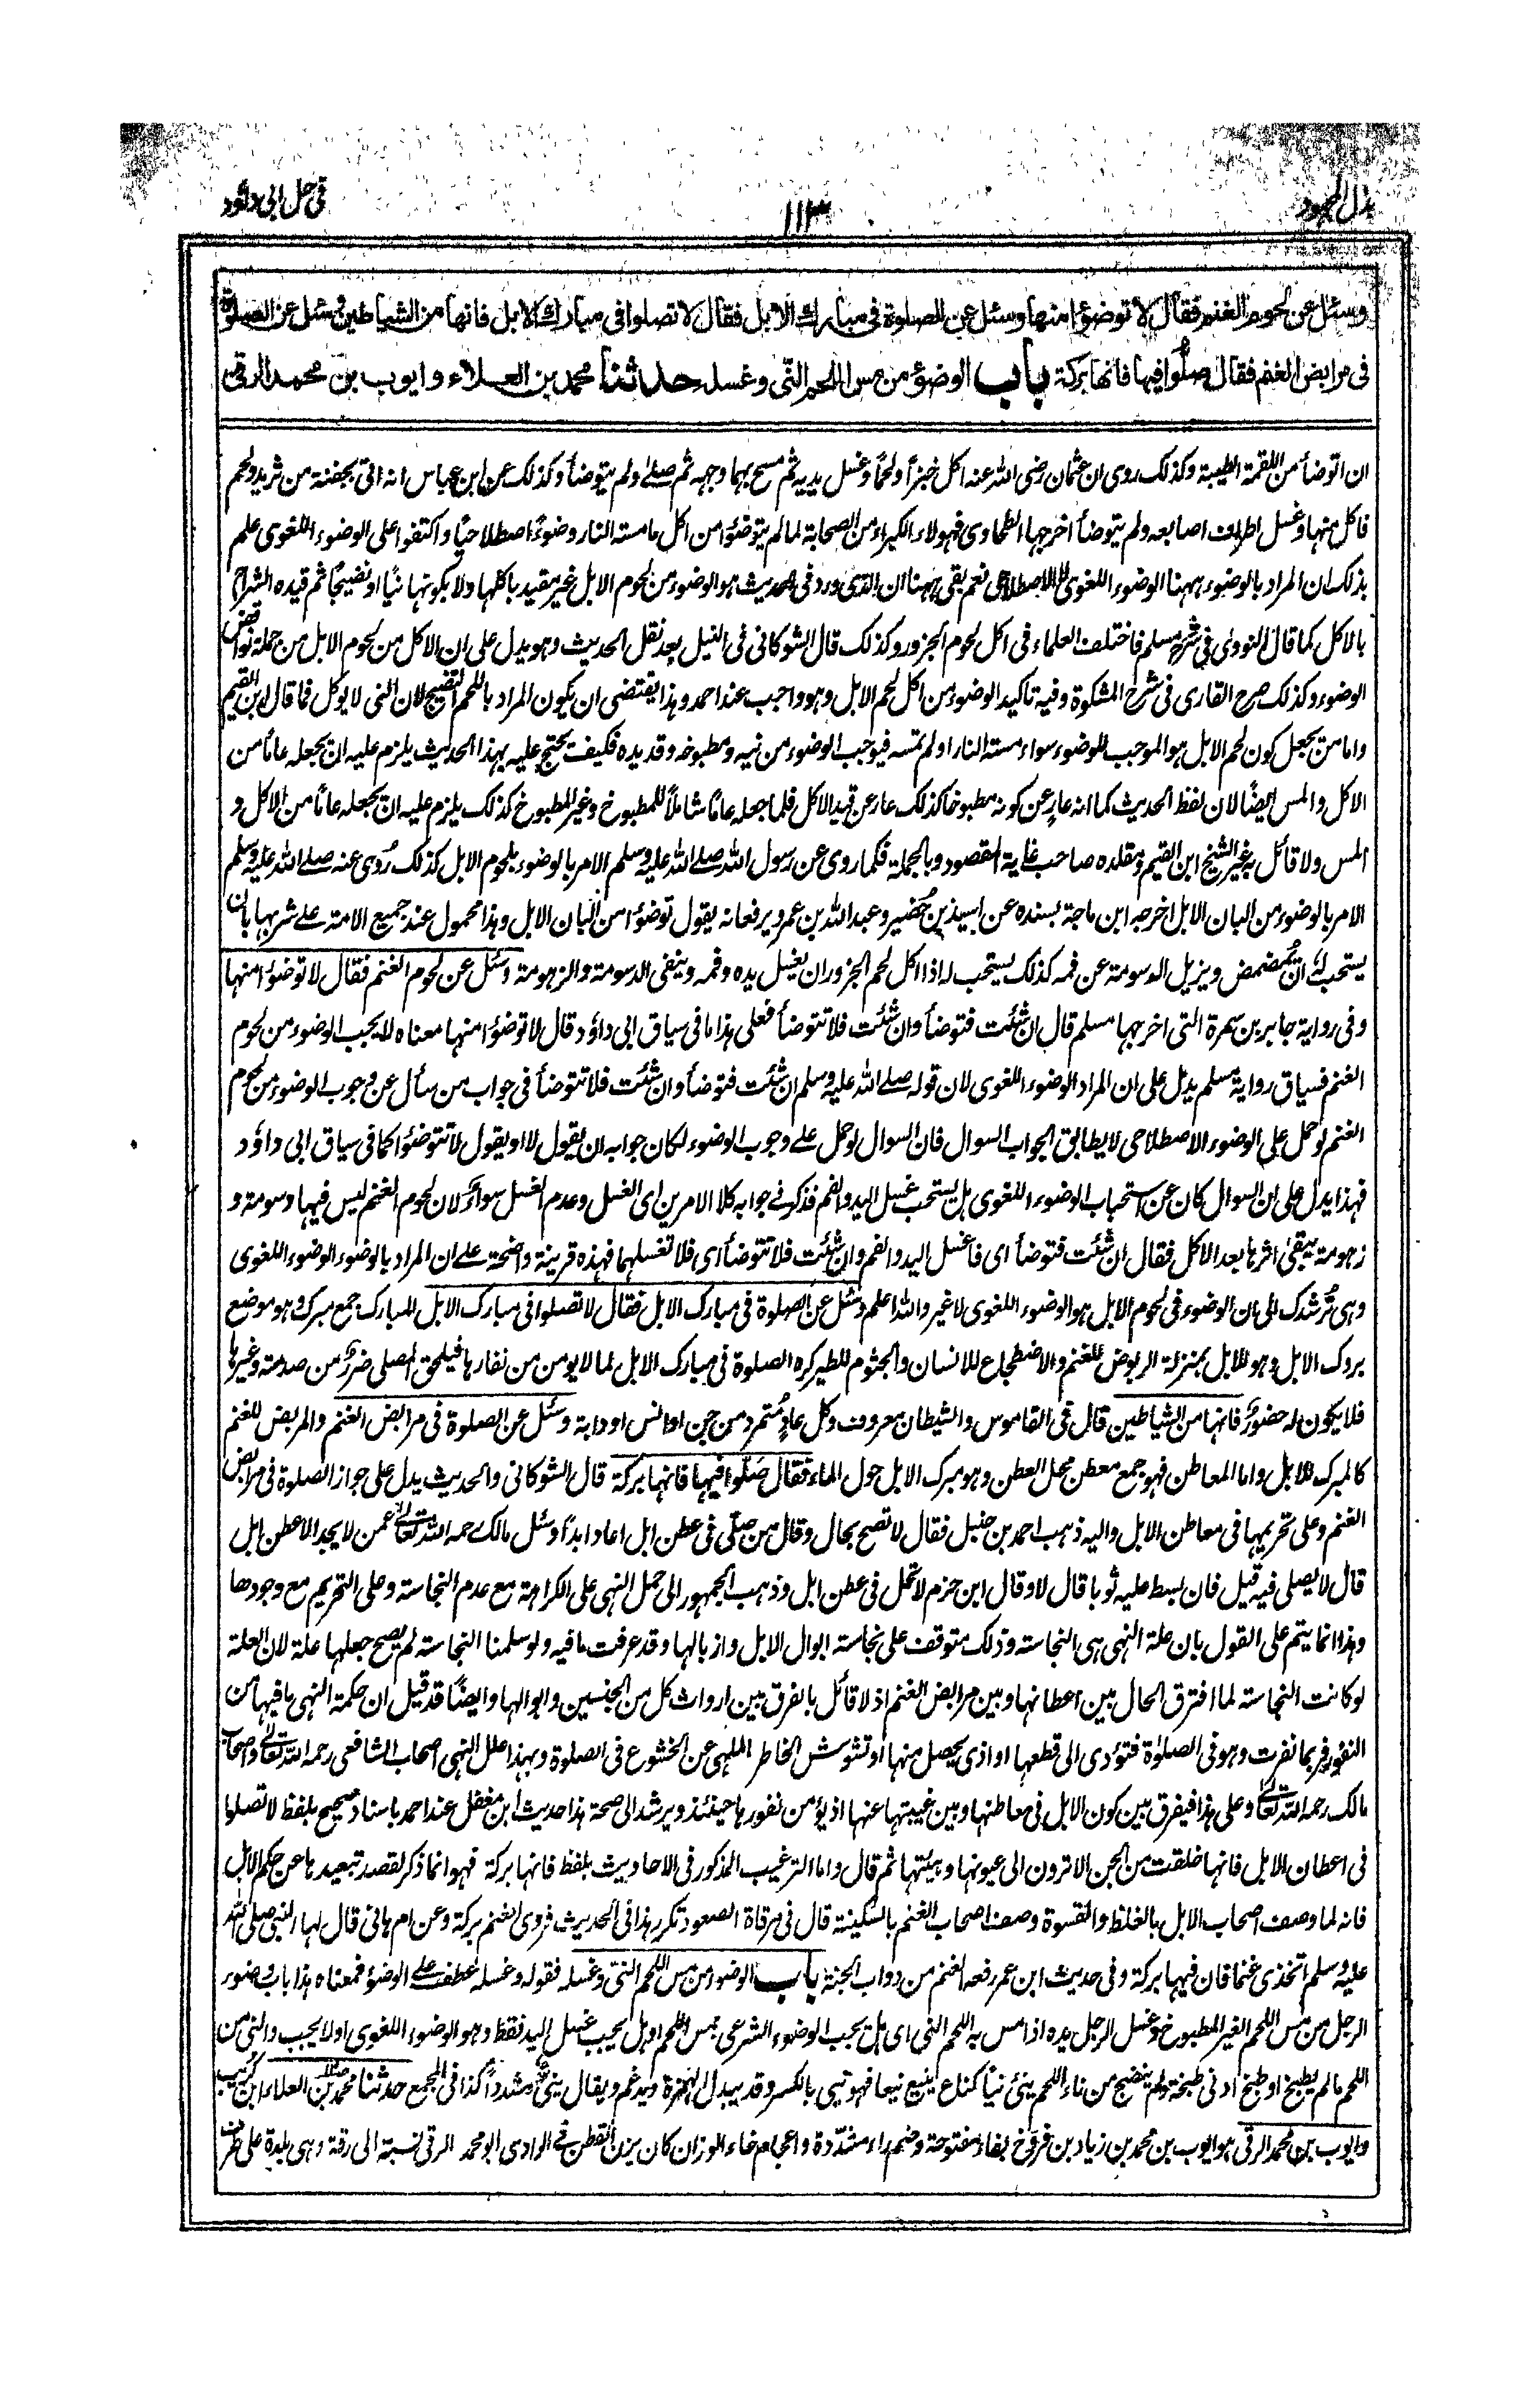 بذل المجهود
١١٣
فى حل ابى داؤد
وسئل عن لحوم الغنم فقال لا توضؤا منها وسئل عن الصلوة فى مبارك الابل فقال لا تصلوا فى مبارك الابل فانها من الشياطين وسئل عن الصلوة
فى مرابض الغنم فقال صلوا فيها فانها بركة باب الوضوء من مس اللحم النّى وغسله حدثنا محمد بن العلاء وايوب بن محمد الرقى
ان اتوضأ من اللقمة الطيبة وكذلك روى ان عثمان رضى الله عنه اكل خبزاً ولحماً وغسل يديه ثم مسح بهما وجهه ثم صلے ولم يتوضأ وكذلك عن ابن عباس انه اتى بجفنة من ثريد ولحم
فاكل منها وغسل اطراف اصابعه ولم يتوضأ اخرجها الطحاوى فهولاء الكبراء من الصحابة لما لم يتوضؤا من اكل ما مسته النار وضوءً اصطلاحيًا واكتفوا على الوضوء اللغوى علم
بذلك ان المراد بالوضوء ههنا الوضوء اللغوى لا الاصطلاحى نعم بقى ههنا ان الذى ورد فى الحديث هو الوضوء من لحوم الابل غير مقيد باكلها ولا بكونها نيًا او نضيجًا ثم قيده الشراح
بالاكل كما قال النووى فى شرح مسلم فاختلف العلماء فى اكل لحوم الجزور وكذلك قال الشوكانى فى النيل بعد نقل الحديث وهو يدل على ان الاكل من لحوم الابل من جملة نواقض
الوضوء وكذلك صرح القارى فى شرح المشكوة وفيه تاكيد الوضوء من اكل لحم الابل وهو واجب عند احمد وهذا يقتضى ان يكون المراد باللحم النضيج لان النى لا يوكل فما قال ابن القيم
واما من يجعل كون لحم الابل هو الموجب للوضوء سواء مسته النار او لم تمسه فيوجب الوضوء من نيه ومطبوخه وقديده فكيف يحتج عليه بهذا الحديث يلزم عليه ان يجعله عامًا من
الاكل والمس ايضًا لان لفظ الحديث كما انه عار عن كونه مطبوخا كذلك عار عن قيد الاكل فلما جعله عامًا شاملاً للمطبوخ وغير المطبوخ كذلك يلزم عليه ان يجعله عامًا من الاكل و
المس ولا قائل به غير الشيخ ابن القيم ومقلده صاحب غاية المقصود وبالجملة فكما روى عن رسول الله صلے الله عليه وسلم الامر بالوضوء بلحوم الابل كذلك رُوى عنه صلے الله عليه وسلم
الامر بالوضوء من البان الابل اخرجه ابن ماجة بسنده عن اسيد بن حُضير وعبد الله بن عمر ويرفعانه يقول توضؤا من البان الابل وهذا محمول عند جميع الامة علے شربها بان
يستحب له ان يمضمض ويزيل الدسومة عن فمه كذلك يستحب له اذا اكل لحم الجزور ان يغسل يده وفمه وينفى الدسومة والزهومة وسئل عن لحوم الغنم فقال لا توضؤا منها
وفى رواية جابر بن سمرة التى اخرجها مسلم قال ان شئت فتوضأ وان شئت فلا تتوضأ فعلى هذا ما فى سياق ابى داؤد قال لا توضؤا منها معناه لا يجب الوضوء من لحوم
الغنم فسياق رواية مسلم يدل على ان المراد الوضوء اللغوى لان قوله صلے الله عليه وسلم ان شئت فتوضأ وان شئت فلا تتوضأ فى جواب من سأل عن وجوب الوضوء من لحوم
الغنم لو حمل على الوضوء الاصطلاحى لا يطابق الجواب السوال فان السوال لو حمل علے وجوب الوضوء لكان جوابه ان يقول لا او يقول لا تتوضؤا كما فى سياق ابى داؤد
فهذا يدل على ان السوال كان عن استحباب الوضوء اللغوى هل يستحب غسل اليد والفم فذكر فے جوابه كلا الامرين اى الغسل وعدم الغسل سواءً لان لحوم الغنم ليس فيها دسومة و
زهومة يبقى اثرها بعد الاكل فقال ان شئت فتوضأ اى فاغسل اليد والفم وان شئت فلا تتوضأ اى فلا تغسلهما فهذه قرينة واضحة علے ان المراد بالوضوء الوضوء اللغوى
وهى تُرشدك الى ان الوضوء فى لحوم الابل هو الوضوء اللغوى لا غير والله اعلم وسئل عن الصلوة فى مبارك الابل فقال لا تصلوا فى مبارك الابل المبارك جمع مبرك وهو موضع
بروك الابل وهو للابل بمنزلة الربوض للغنم والاضطجاع للانسان والجثوم للطير كره الصلوة فى مبارك الابل لما لا يومن من نفارها فيلحق المصلى ضررٌ من صدمة وغيرها
فلا يكون له حضورٌ فانها من الشياطين قال فى القاموس والشيطان معروف وكل عادٍ مُتمرد من جن او انس او دابة وسئل عن الصلوة فى مرابض الغنم والمربض للغنم
كالمبرك للابل واما المعاطن فهو جمع معطن محل العطن وهو مبرك الابل حول الماء فقال صَلّوا فيها فانها بركة قال الشوكانى والحديث يدل على جواز الصلوة فى مرابض
الغنم وعلى تحريمها فى معاطن الابل واليه ذهب احمد بن حنبل فقال لا تصح بحال وقال من صلّى فى عطن ابل اعاد ابداً وسئل مالك رحمه الله تعالى عمن لا يجد الا عطن ابل
قال لا يصلى فيه قيل فان بسط عليه ثوبا قال لا وقال ابن حزم لا تحل فى عطن ابل وذهب الجمهور الى حمل النهى على الكراهة مع عدم النجاسة وعلى التحريم مع وجودها
وهذا انما يتم على القول بان علة النهى هى النجاسة وذلك متوقف على نجاسة ابوال الابل وازبالها وقد عرفت ما فيه ولو سلمنا النجاسة لم يصح جعلها علة لان العلة
لو كانت النجاسة لما افترق الحال بين اعطانها وبين مرابض الغنم اذ لا قائل بالفرق بين ارواث كل من الجنسين وابوالها وايضًا قد قيل ان حكمة النهى ما فيها من
النفور فربما نفرت وهو فى الصلوٰة فتؤدى الى قطعها او اذى يحصل منها او تشوش الخاطر الملهى عن الخشوع فى الصلوة وبهذا علل النهى اصحاب الشافعى رحمه الله تعالى واصحاب
مالك رحمه الله تعالى وعلى هذا فيفرق بين كون الابل فى معاطنها وبين غيبتها عنها اذ يؤمن نفورها حينئذ ويرشد الى صحة هذا حديث ابن مغفل عند احمد باسناد صحيح بلفظ لا تصلوا
فى اعطان الابل فانها خلقت من الجن الا ترون الى عيونها وهيئتها ثم قال واما الترغيب المذكور فى الاحاديث بلفظ فانها بركة فهو انما ذكر لقصد تبعيدها عن حكم الابل
فانه لما وصف اصحاب الابل بالغلظ والقسوة وصف اصحاب الغنم بالسكينة قال فى مرقاة الصعود تكرر هذا فى الحديث فروى الغنم بركة وعن ام هانى قال لها النبى صلى الله
عليه وسلم اتخذى غنما فان فيها بركة وفى حديث ابن عمر رفعه الغنم من دواب الجنة باب الوضوء من مس اللحم النئ وغسله فقوله وغسله عطف علے الوضوء فمعناه هذا باب فى وضوء
الرجل من مس اللحم الغير المطبوخ وغسل الرجل يده اذا مس به اللحم النى اى هل يجب الوضوء الشرعى بمس اللحم او هل يجب غسل اليد فقط وهو الوضوء اللغوى او لا يجب والنى من
اللحم ما لم يطبخ او طبخ ادنى طبخة ولم ينضج من ناء اللحم ينئ نيأ كناع ينيع نيعا فهو نيئ بالكسر وقد يبدل الهمزة ويدغم ويقال نىّ مشدداً كذا فى المجمع حدثنا محمد بن العلاء ابن كريب
وايوب بن محمد الرقى هو ايوب بن محمد بن زياد بن فروخ بفاء مفتوحة وضم راء مشددة واعجام خاء الوزان كان يزن القطن فے الوادى ابو محمد الرقى نسبة الى رقة وهى بلدة على طرف